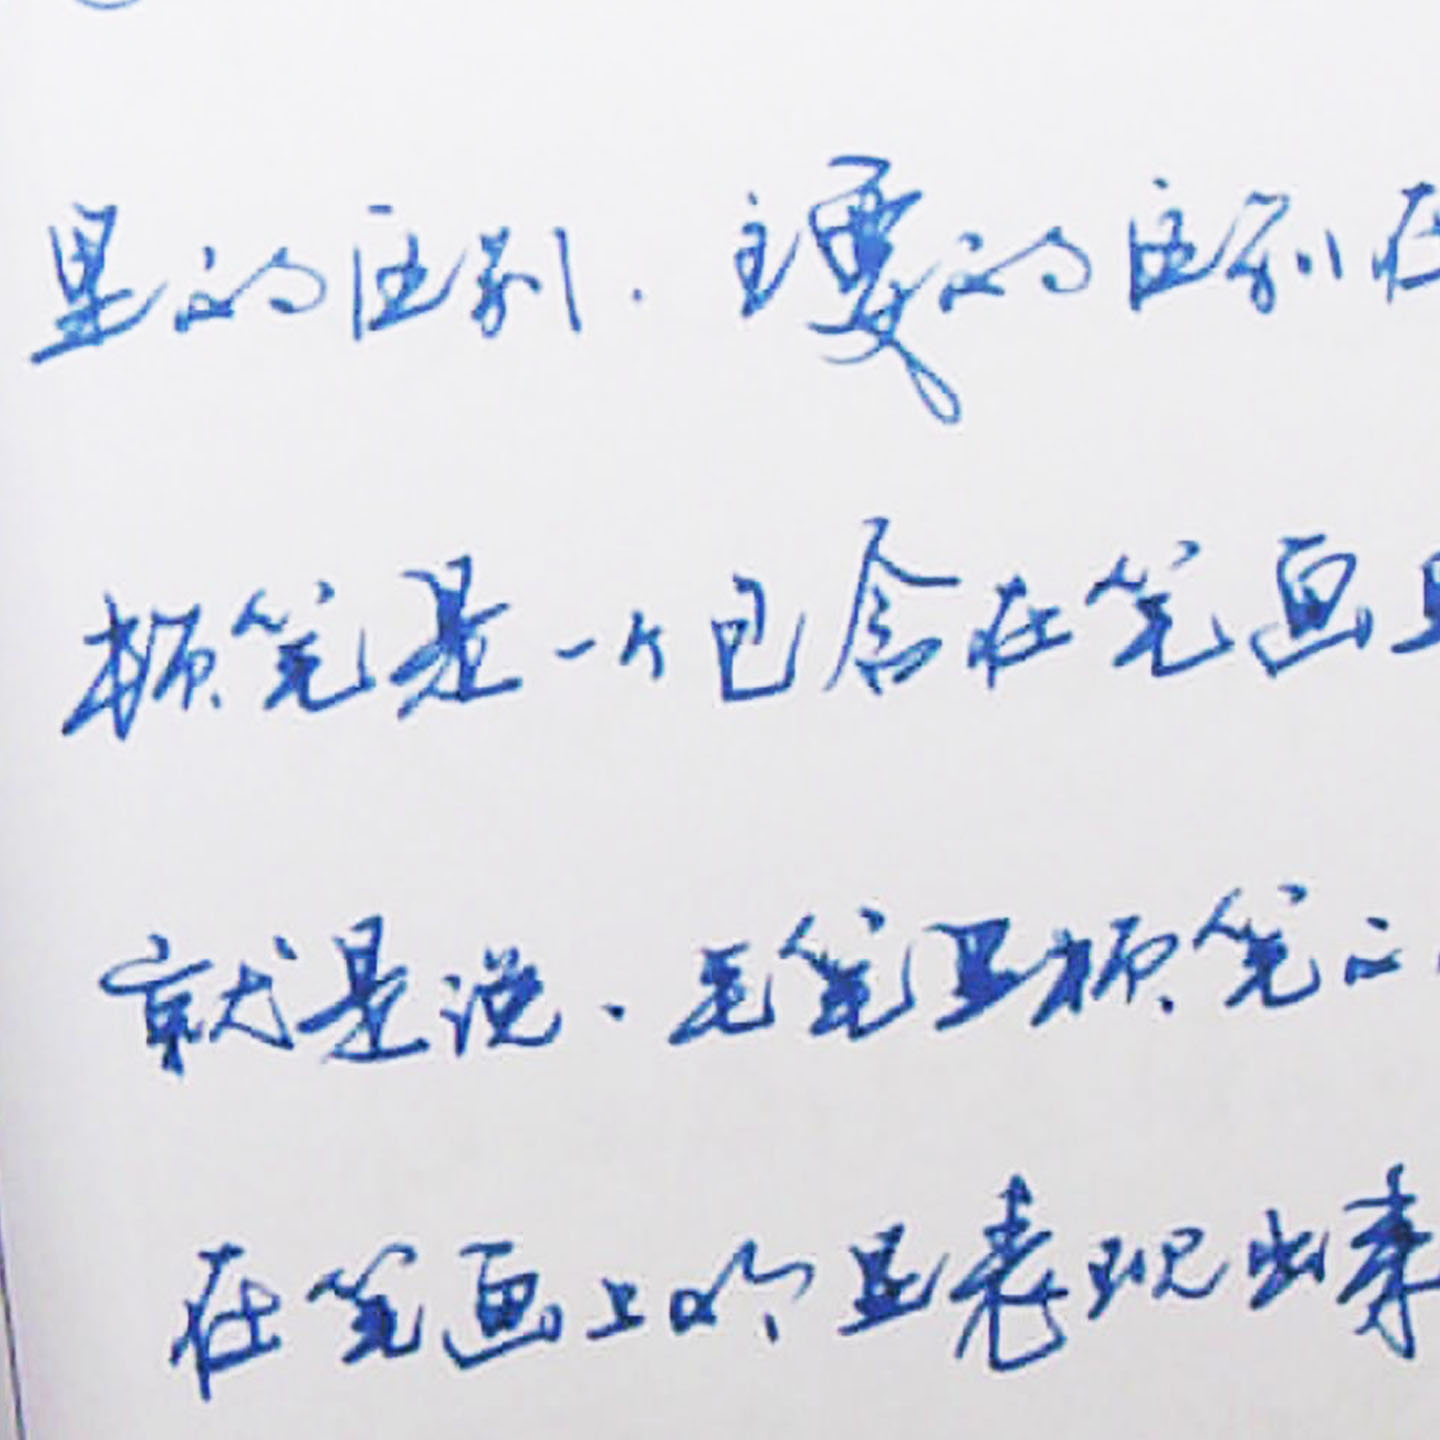 显的区别. 主要的区别在
笔是一个包含在笔画
就是说. 毛笔 笔
在笔画上明显表现出来